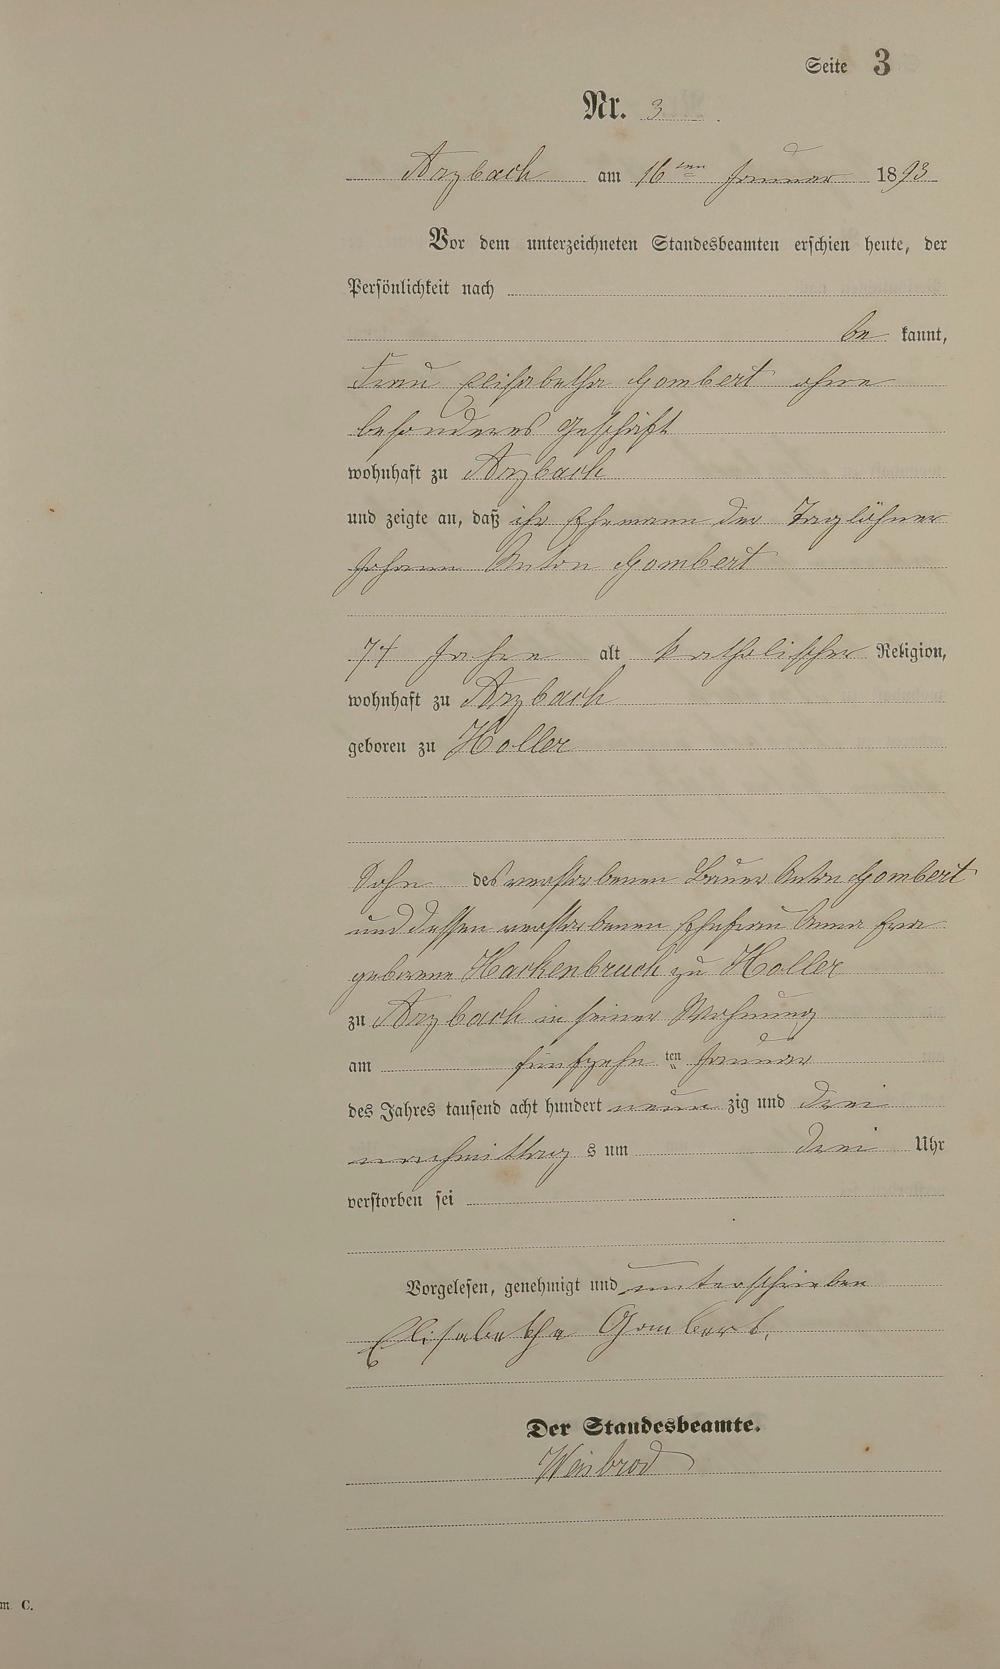 Seite 3
Nr. 3
Arzbach am 16ten Januar 1893
Vor dem unterzeichneten Standesbeamten erschien heute, der
Persönlichkeit nach
be kannt,
Frau Elisabetha Gombert ohne
besonderes Geschäft
wohnhaft zu Arzbach
und zeigte an, daß ihr Ehemann der Taglöhner
Johann Anton Gombert
74 Jahre alt katholischer Religion,
wohnhaft zu Arzbach
geboren zu Holler
Sohn des verstorbenen Bauer Anton Gombert
und dessen verstorbenen Ehefrau Anna Eva
geborene Hackenbruch zu Holler
zu Arzbach in seiner Wohnung
am fünfzehn ten Januar
des Jahres tausend acht hundert neun zig und drei
nachmittag s um drei Uhr
verstorben sei
Vorgelesen, genehmigt und unterschrieben
Elisabetha Gombert.
Der Standesbeamte.
Weisbrod
m. C.